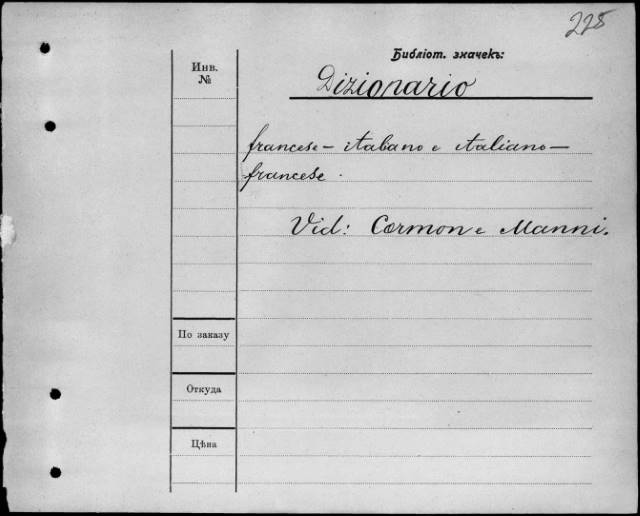 228
Библіот. значекъ:
Инв.
№
Dizionario
francese – italiano e italiano –
francese.
Vid: Cormon e Manni.
По заказу
Откуда
Цѣна